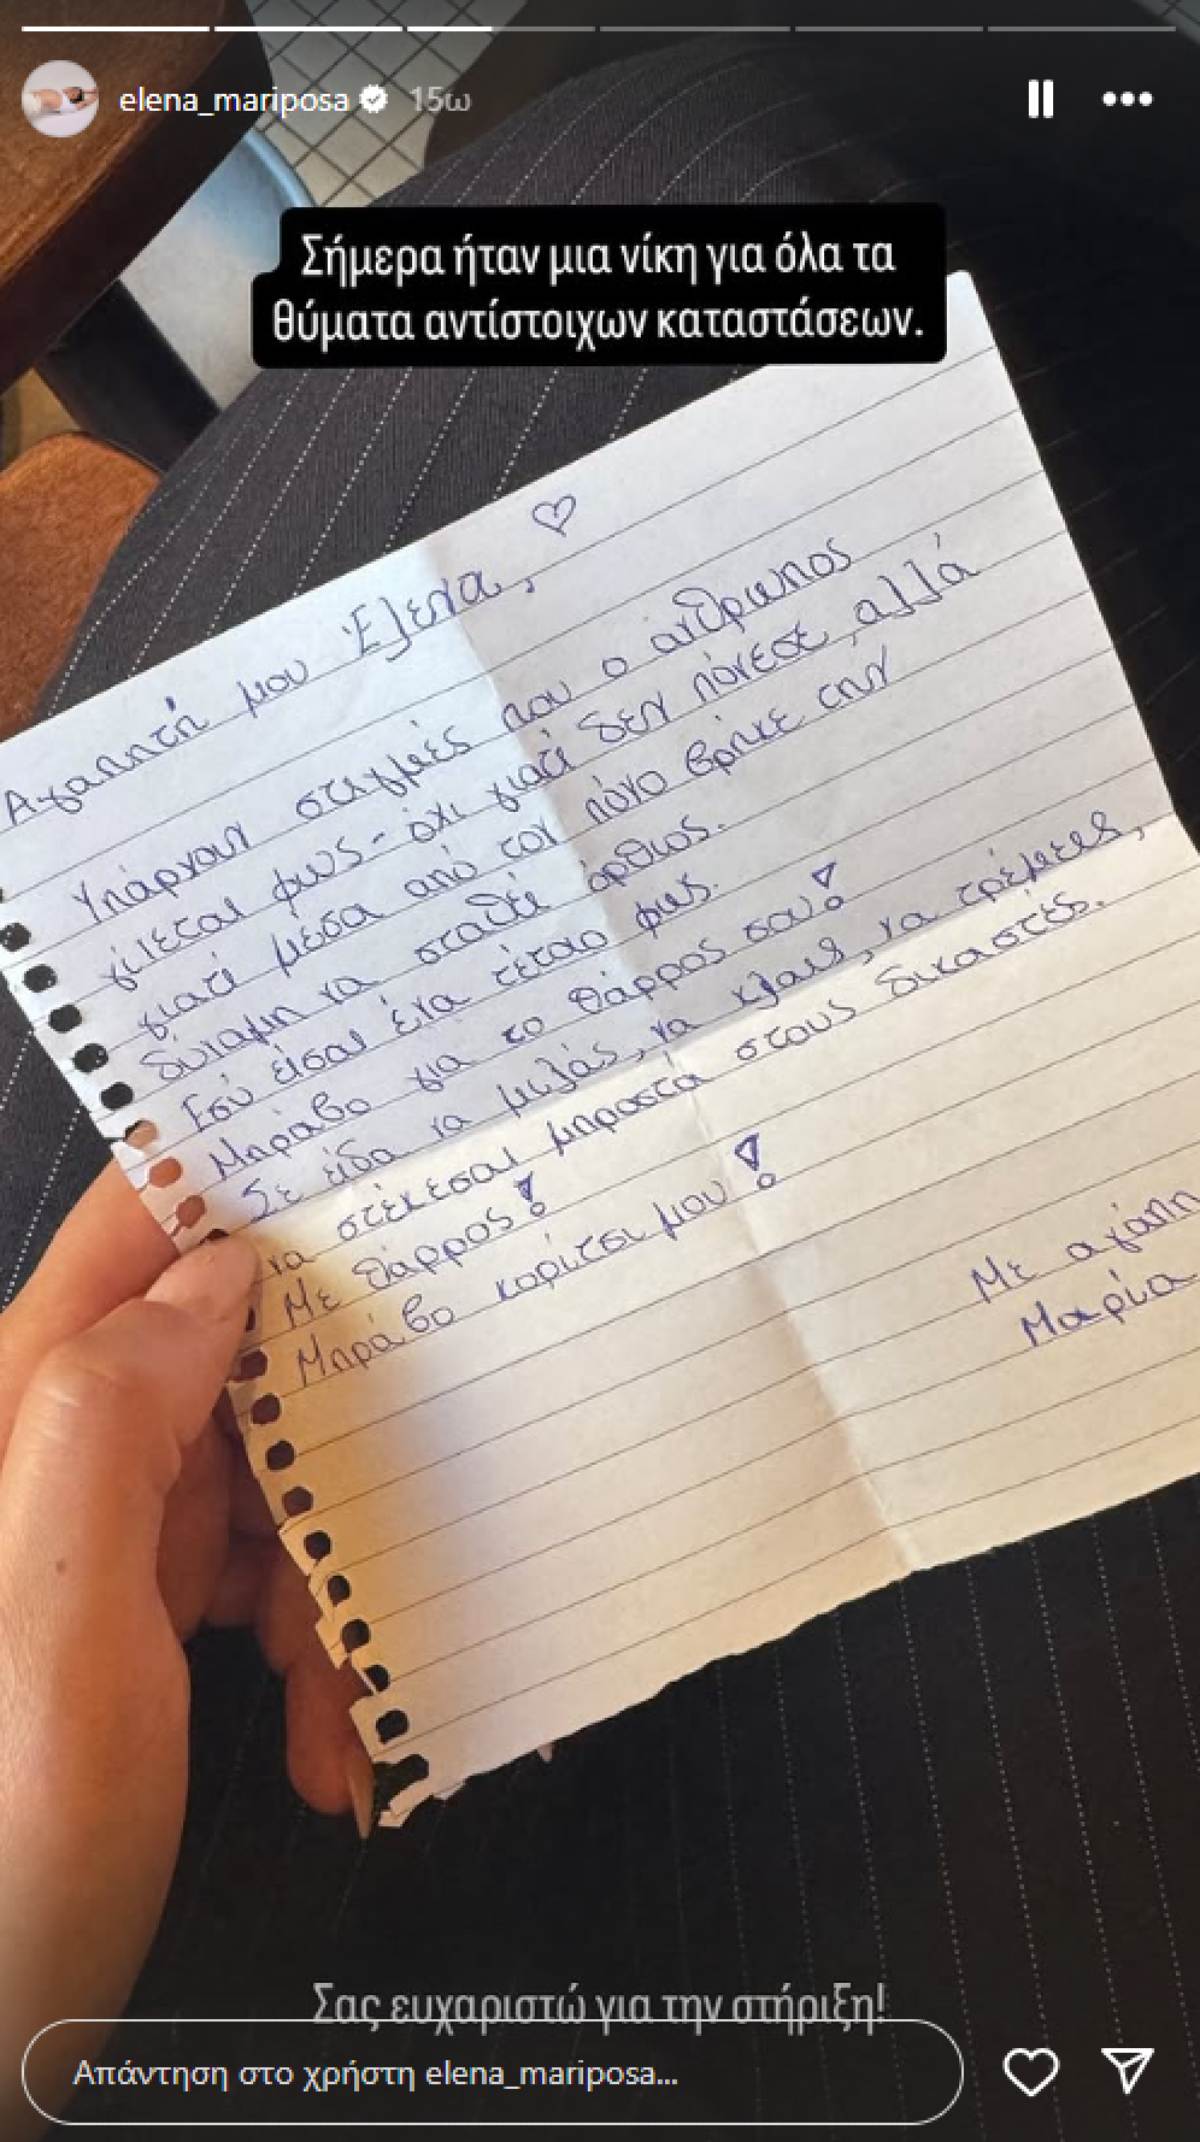 elena_mariposa 15ω
Σήμερα ήταν μια νίκη για όλα τα
θύματα αντίστοιχων καταστάσεων.
Αγαπητή μου Έλενα,
Υπάρχουν στιγμές που ο άνθρωπος
γίνεται φως - όχι γιατί δεν πόνεσε, αλλά
γιατί μέσα από τον πόνο βρήκε την
δύναμη να σταθεί όρθιος.
Εσύ είσαι ένα τέτοιο φως.
Μπράβο για το θάρρος σου!
Σε είδα να μιλάς, να κλαις, να τρέμεις,
να στέκεσαι μπροστά στους δικαστές.
Με θάρρος!
Μπράβο κορίτσι μου!
Με αγάπη
Μαρία
Σας ευχαριστώ για την στήριξη!
Απάντηση στο χρήστη elena_mariposa...